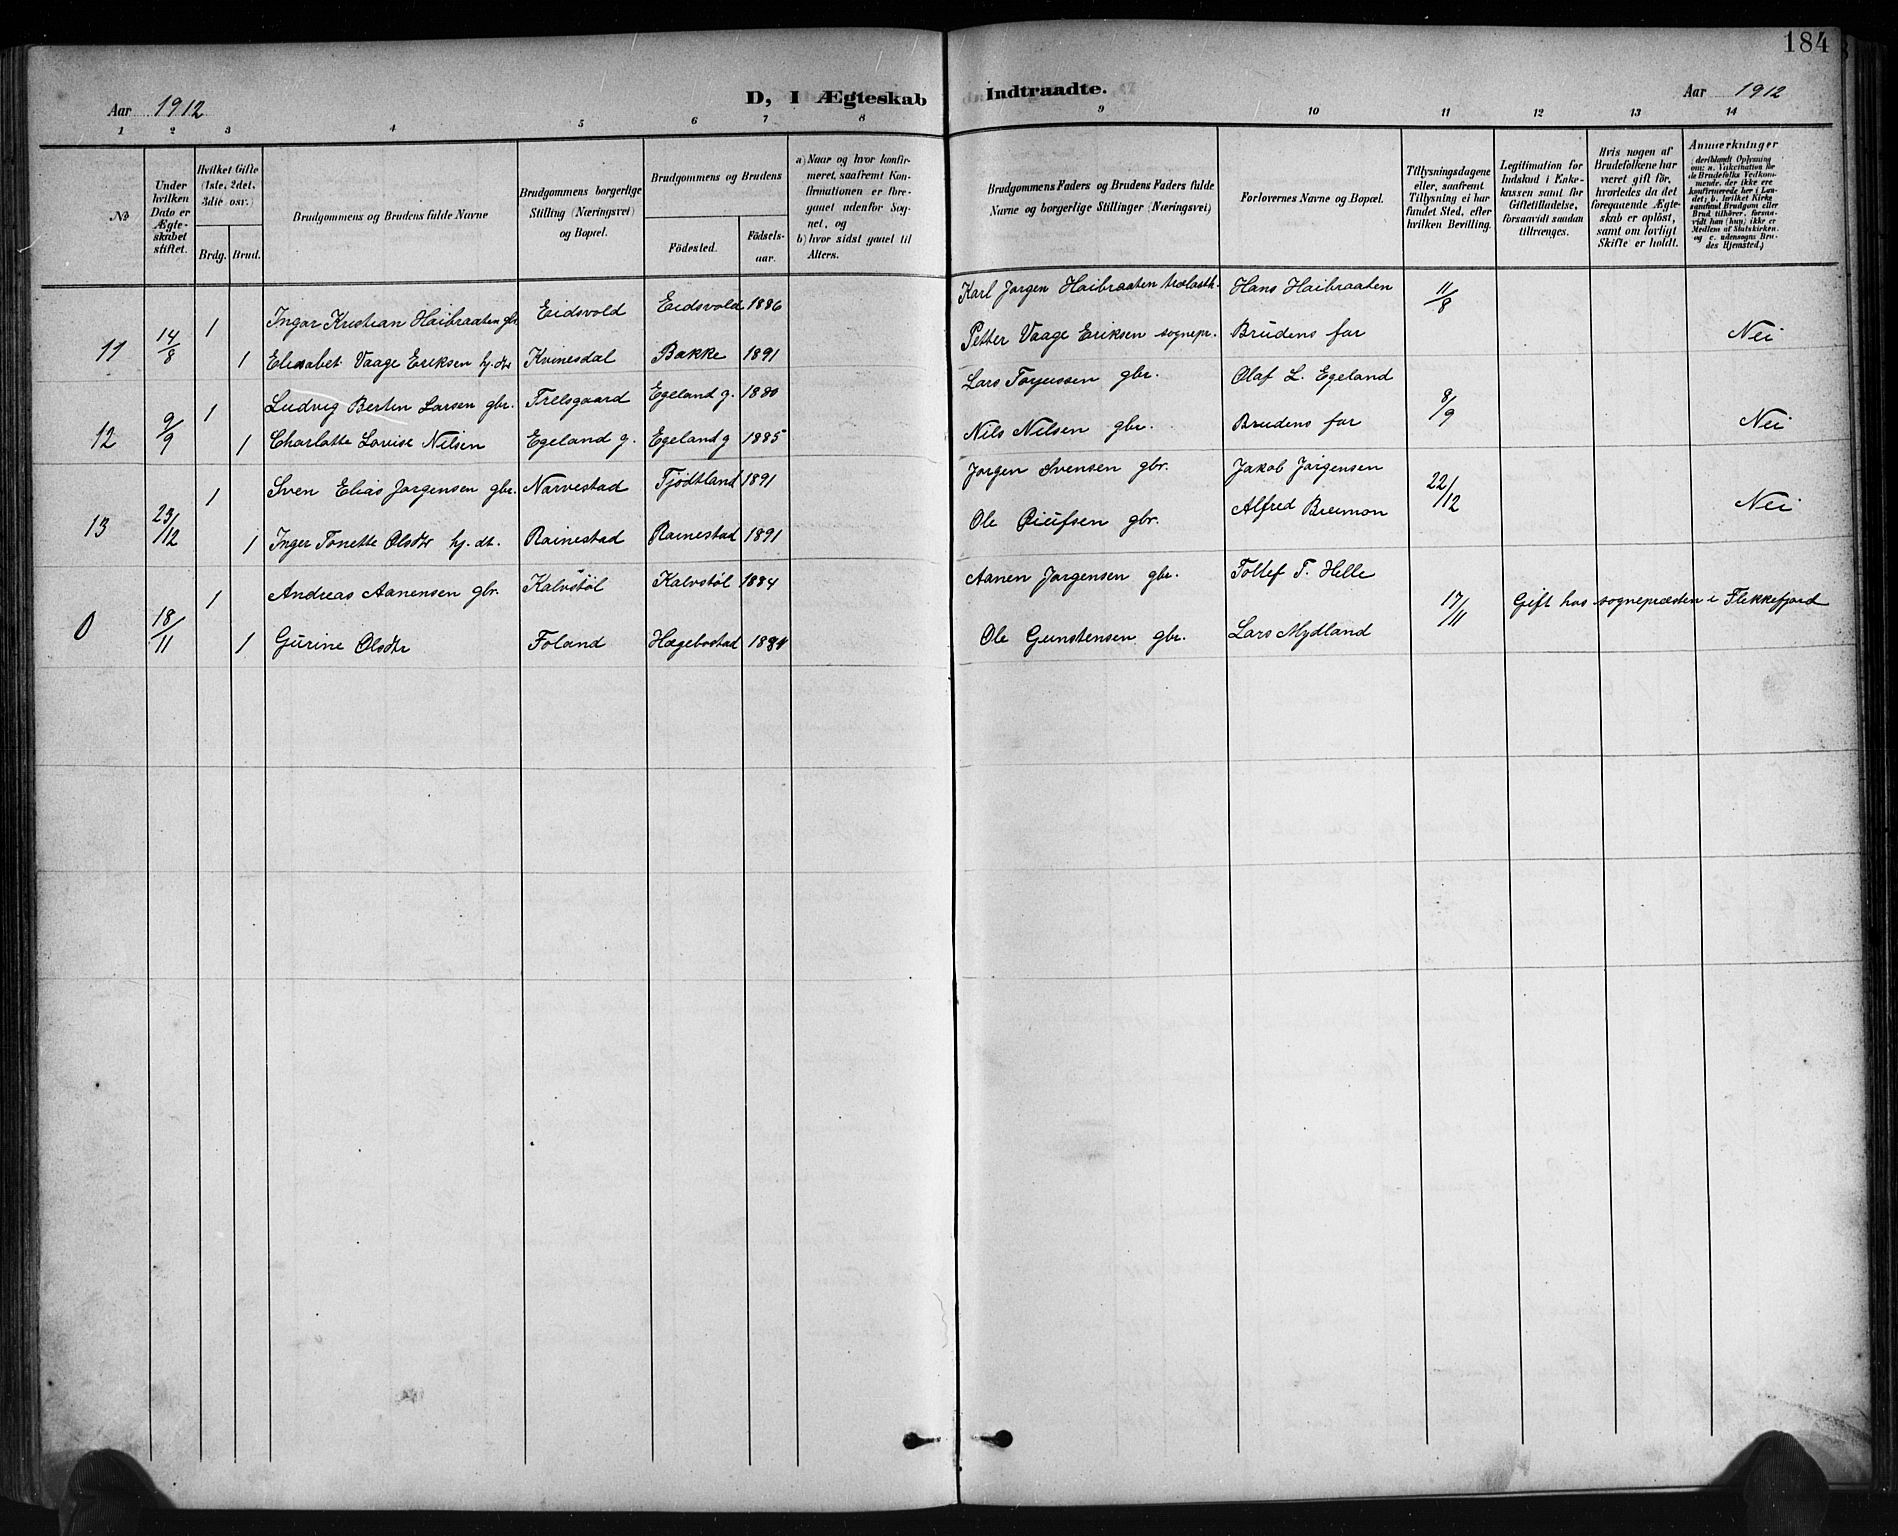 184
Aar 1912
D, I Ægteskab Indtraadte.
Aar 1912
1 2 3 4 5 6 7 8 9 10 11 12 13 14
No
Under hvilken Dato er Ægteskabet stiftet.
Hvilket Gifte (1ste, 2det, 3die osv.)
Brdg. Brud.
Brudgommens og Brudens fulde Navne
Brudgommens borgerlige Stilling (Næringsvei) og Bopæl.
Brudgommens og Brudens
Födested. Födselsaar.
a) Naar og hvor konfirmeret, saafremt Konfirmationen er foregaaet udenfor Sognet, og
b) hvor sidst gaaet til Alters.
Brudgommens Faders og Brudens Faders fulde Navne og borgerlige Stillinger (Næringsvei)
Forlovernes Navne og Bopæl.
Tillysningsdagene eller, saafremt Tillysning ei har fundet Sted, efter hvilken Bevilling.
Legitimation for Indskud i Enkekassen samt for Giftetilladelse, forsaavidt saadan tiltrænges.
Hvis nogen af Brudefolkene har været gift för, hvorledes da det foregaaende Ægteskab er oplöst, samt om lovligt Skifte er holdt.
Anmærkninger
(deriblandt Oplysning om: a. Vakcination for de Brudefolks Vedkommende, der ikke ere konfirmerede her i Landet; b. hvilket Kirkesamfund Brudgom eller Brud tilhörer, forsaavidt han (hun) ikke er Medlem af Statskirken. og c. udensogns Brudes Hjemsted.)
11 14/8 1 Ingar Kristian Haibraaten gbr. Eidsvold Eidsvold 1886 Karl Jørgen Haibraaten Hans Haibraaten 11/8
1 Elisabet Vaage Eriksen hj. dtr Kvinesdal Bakke 1891 Petter Vaage Eriksen sognepr. Brudens far Nei
12 9/9 1 Ludvig Bertin Larsen gbr. Trelsgaard Egeland g. 1880 Lars Torjussen gbr. Olaf L. Egeland 8/9
1 Charlotte Lovise Nilsen Egeland g. Egeland g 1885 Nils Nilsen gbr. Brudens far Nei
13 23/12 1 Sven Elias Jørgensen gbr. Narvestad Tjödtland 1891 Jørgen Svensen gbr. Jakob Jørgensen 22/12
1 Inger Tonette Olsdtr hj. dt. Rainestad Rainestad 1891 Ole gbr. Alfred Breimon Nei
0 18/11 1 Andreas Aanensen gbr. Kalvstøl Kalvstøl 1884 Aanen Jørgensen gbr. Tollef T. Helle 17/11 Gift hos sognepræsten i Flekkefjord
1 Gurine Olsdtr Foland Hægebostad 1884 Ole Gunstensen gbr. Lars Mydland